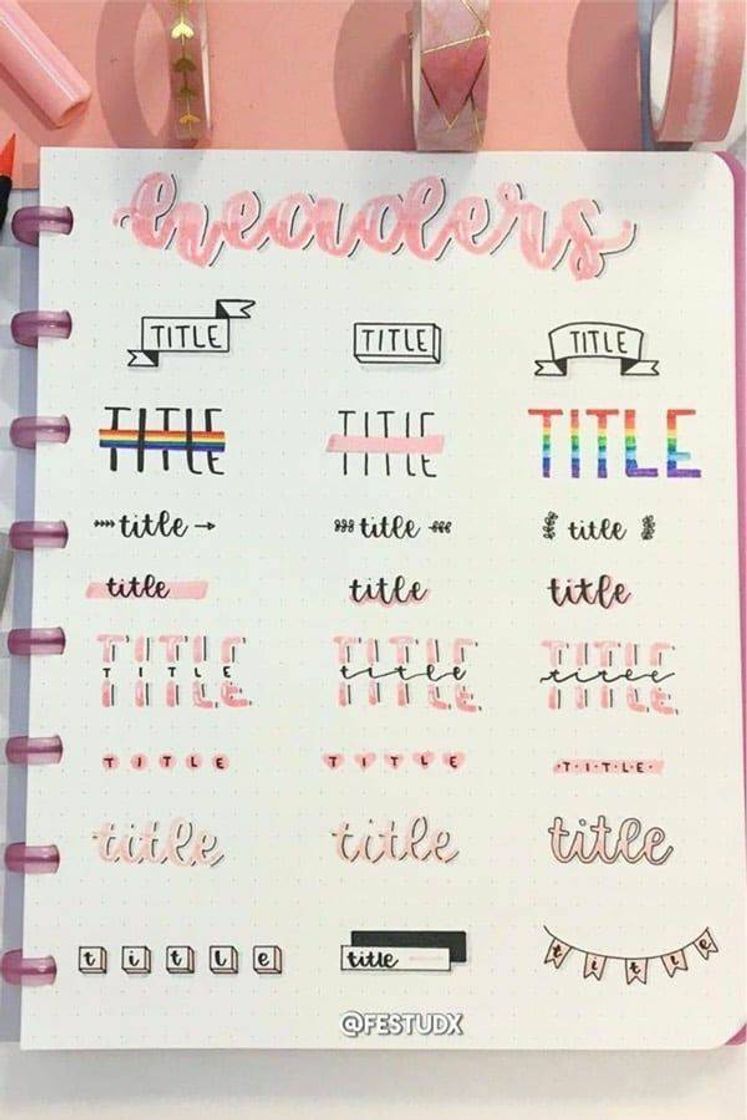 headers
TITLE TITLE TITLE
TITLE TITLE TITLE
title title title
title title title
TITLE TITLE TITLE
TITLE title title
TITLE TITLE T·I·T·L·E
title title title
title title title
@FESTUDX